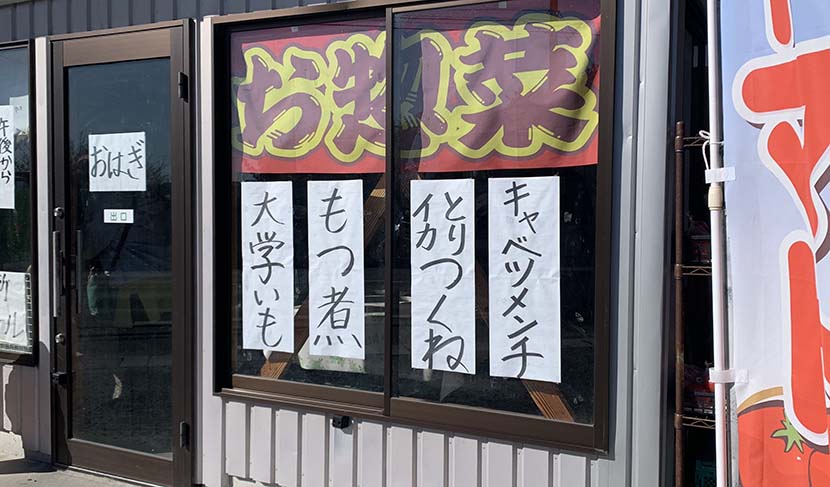 お惣菜
キャベツメンチ
とりつくね
イカ
もつ煮
大学いも
おはぎ
出口
午後から